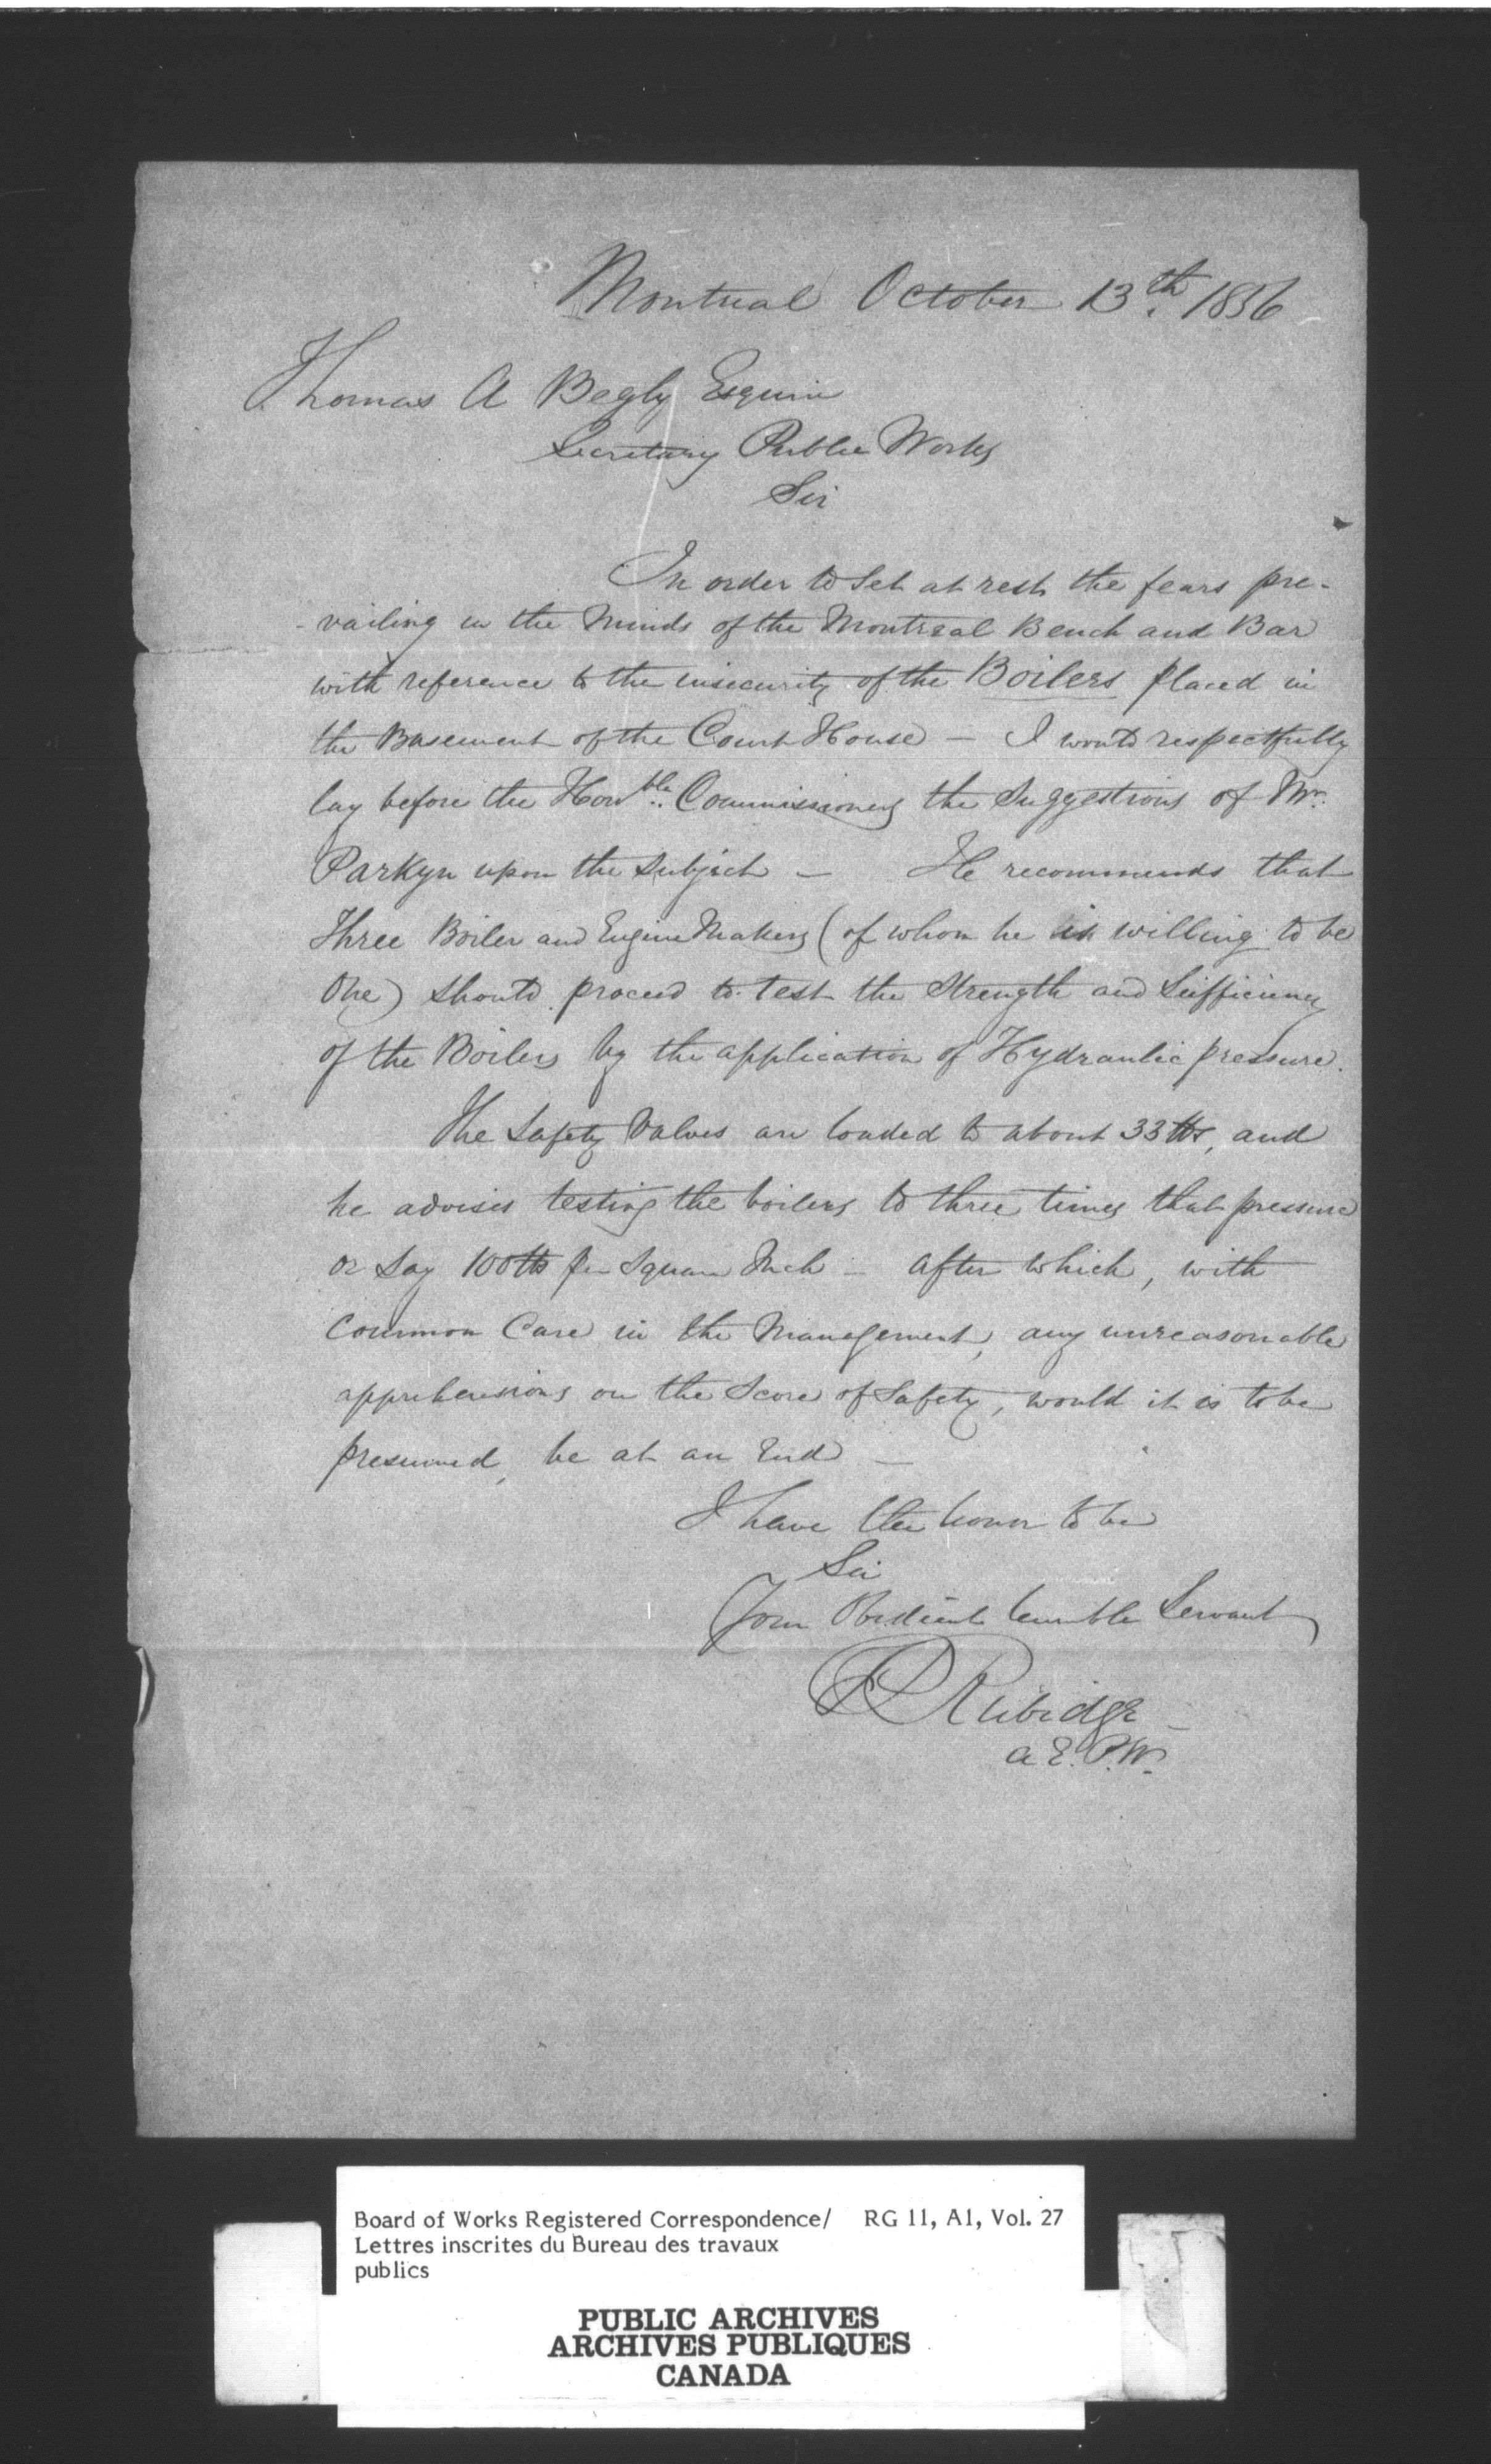 Montreal October 13th. 1856
Thomas A Begly Esquire
Secretary Public Works
Sir
In order to Set at rest the fears pre-
-vailing in the Minds of the Montreal Bench and Bar
with reference to the insecurity of the Boilers placed in
the Basement of the Court House — I would respectfully
lay before the Honble. Commissioners the Suggestions of Mr.
Parkyn upon the Subject — He recommends that
Three Boiler and Engine Makers (of whom he is willing to be
One) should proceed to test the Strength and Sufficiency
of the Boilers by the application of Hydraulic pressure.
The Safety Valves are loaded to about 33 lbs, and
he advises testing the boilers to three times that pressure
or Say 100 lbs per Square Inch — After which, with
Common Care in the Management, any unreasonable
apprehensions on the Score of Safety, would it is to be
presumed, be at an End —
I have the honor to be
Sir
Your Obedient humble Servant
F P Rubidge
A. E. P. W.
Board of Works Registered Correspondence/ RG 11, A1, Vol. 27
Lettres inscrites du Bureau des travaux
publics
PUBLIC ARCHIVES
ARCHIVES PUBLIQUES
CANADA